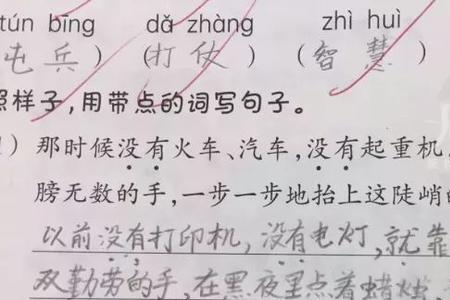 tún bīng dǎ zhàng zhì huì
屯兵）（打仗）（智慧）
照样子,用带点的词写句子。
）那时候没有火车、汽车,没有起重机,
膀无数的手,一步一步地抬上这陡峭的
以前没有打印机,没有电灯,就靠
双勤劳的手,在黑夜里点着蜡烛,